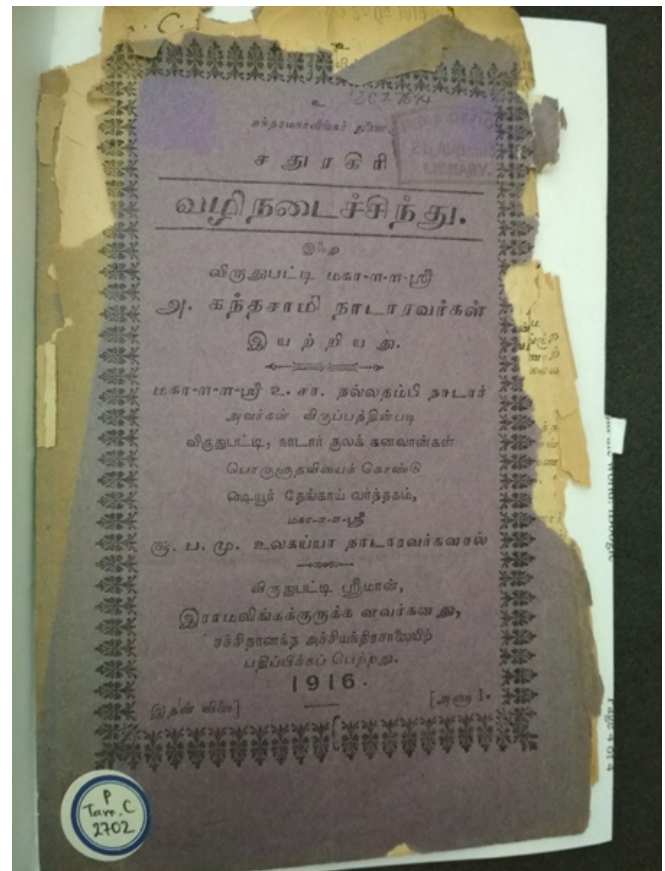 உ
சுந்தரமகாலிங்கர் துணை.
சதுரகிரி
வழிநடைச்சிந்து.
இஃது
விருதுபட்டி மகா-ள-ள-ஸ்ரீ
அ. கந்தசாமி நாடாரவர்கள்
இயற்றியது.
மகா-ள-ள-ஸ்ரீ உ. சா. நல்லதம்பி நாடார்
அவர்கள் விருப்பத்தின்படி
விருதுபட்டி, நாடார் குலக் கனவான்கள்
பொருளுதவியைக் கொண்டு
ஷையூர் தேங்காய் வர்த்தகம்,
மகா-ள-ள-ஸ்ரீ
கு. ப. மு. உலகய்யா நாடாரவர்களால்
விருதுபட்டி ஸ்ரீமான்,
இராமலிங்கக்குருக்க ளவர்களது,
சச்சிதானந்த அச்சியந்திரசாலையிற்
பதிப்பிக்கப் பெற்றது.
1916.
இதன் விலை] [அணா 1.
P
Tam. C
2702
Page 4 of 4